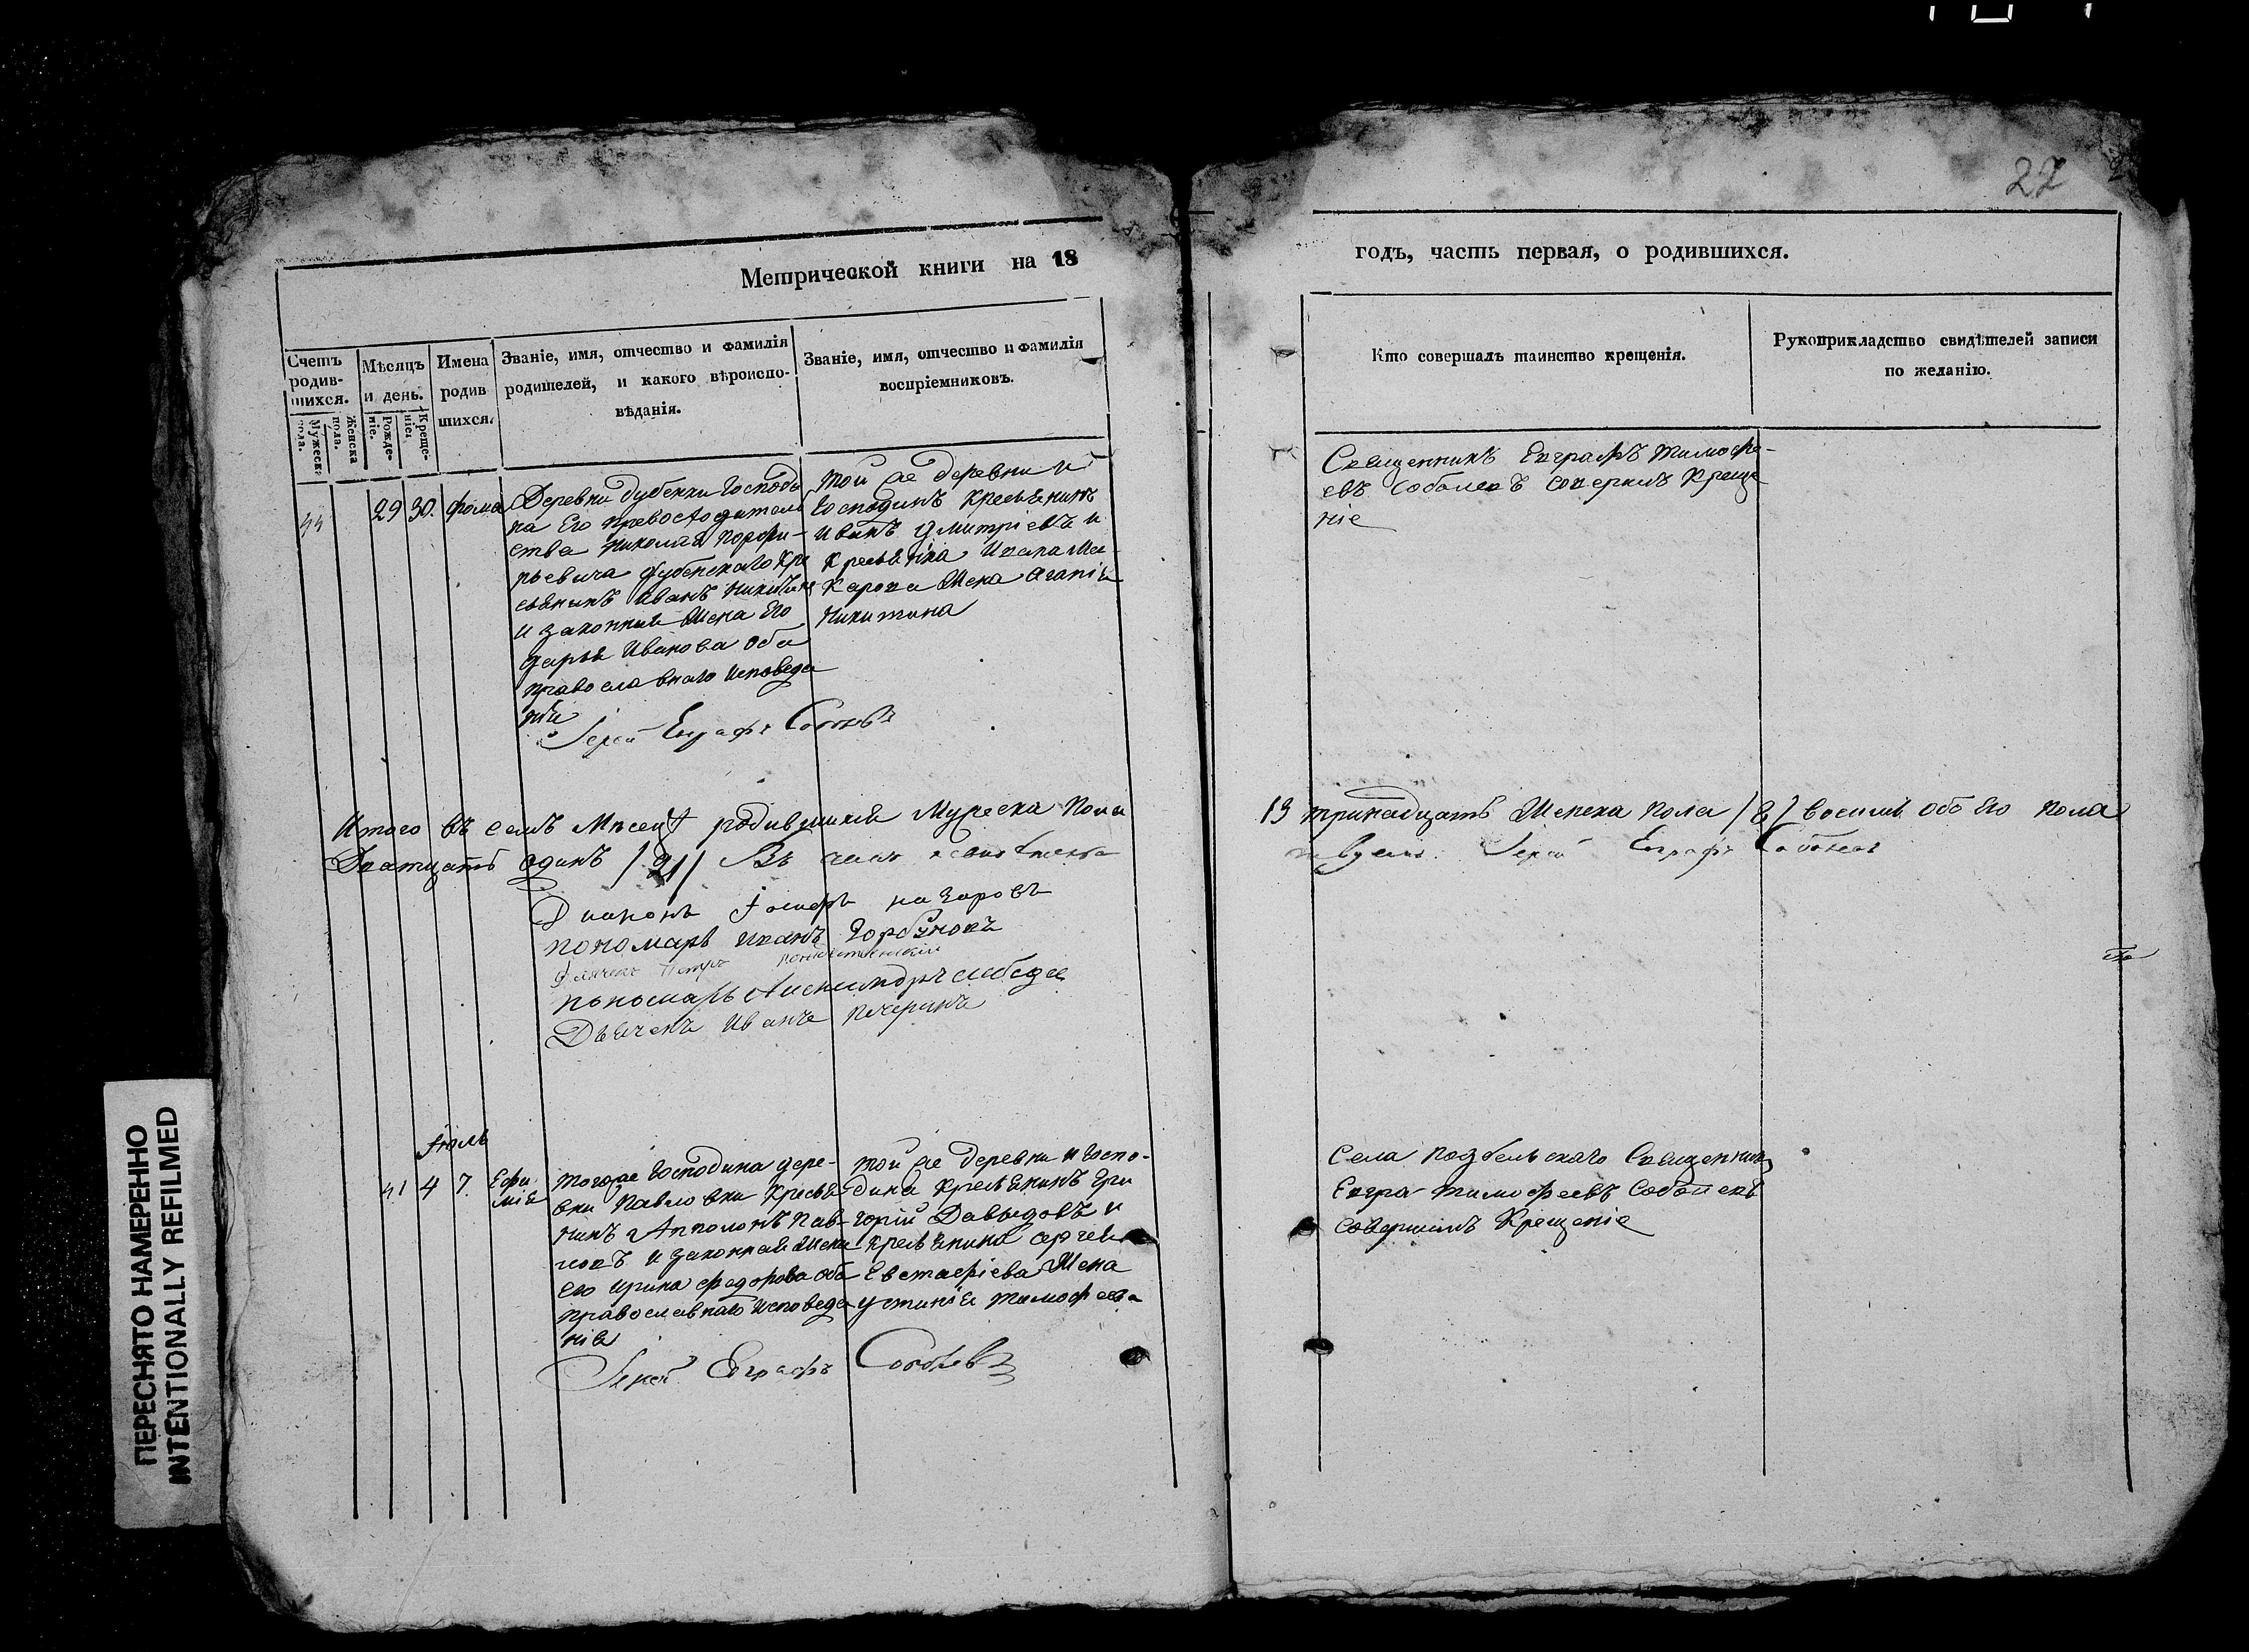 22
Метрической книги на 18
годъ, часть первая, о родившихся.
Счетъ родив-шихся.
Мужеска пола.
Женска пола.
Мѣсяцъ и день.
Рожде-ніе.
Креще-ніе.
Имена родив шихся.
Званіе, имя, отчество и фамилія
родителей, и какого вѣроиспо-
вѣданія.
Званіе, имя, отчество и фамилія
воспріемниковъ.
Кто совершалъ таинство крещенія.
Рукоприкладство свидѣтелей записи
по желанію.
44 29 30. Фома
Деревни Дубенки Господи
на Его превосходитель
ства Николая Порфи-
рьевича Дубенскаго Кре
стьянинъ Иванъ Никитинъ
и законная Жена Его
Дарья Иванова оба
православнаго исповеда
нія
Іерей Евграфъ Соболевъ
той же деревни и
Господинъ Крестьянинъ
Иванъ Дмитріевъ и
Крестьянка Ивана Ма
карова Жена Агапія
Никитина
Священникъ Евграфъ Тимофе-
евъ Соболевъ совершилъ Креще
ніе
Итого въ семъ Мѣсецѣ родившихся Мужеска Пола
13 тринадцать Женска пола /8/ восимь обоего пола
Дватцать одинъ /21/ Въ чемъ
Іерей Евграфъ Соболевъ
Диаконъ Іосифъ Назаровъ
пономарь Иванъ Горбуновъ
Дьячекъ Петръ
пономарь Александръ Лебедев
Дьячекъ Иванъ Печеринъ
Іюль
41 4 7. Ефи
мія
Тогоже Господина дере-
вни Павловки Крестья
нинъ Апполонъ Пав-
ловъ и законная Жена
его Ирина Федорова оба
православнаго исповеда
нія
Іерей Евграфъ Соболевъ
той же деревни и Госпо-
дина Крестьянинъ Гри
горій Давыдовъ и
Крестьянина Сергея
Евстафіева Жена
Устинія Тимофеева
Села Подбельскаго Священникъ
Евгра Тимофеевъ Соболевъ
совершилъ Крещеніе
ПЕРЕСНЯТО НАМЕРЕННО
INTENTIONALLY REFILMED